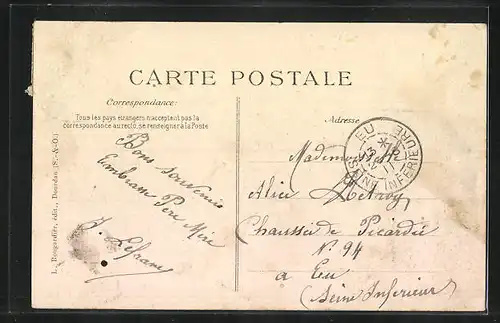 CARTE POSTALE
Correspondance:
Tous les pays étrangers n'acceptent pas la
correspondance au recto, se renseigner à la Poste
Adresse
L. Bougardier, édit., Dourdan (S.-&-O.)
Bons souvenirs
Embrasse Père Mère
J. Lefranc
EU
SEINE INFÉRIEURE
Mademoiselle
Alice
Chaussée de Picardie
N° 94
a Eu
(Seine Inferieur)